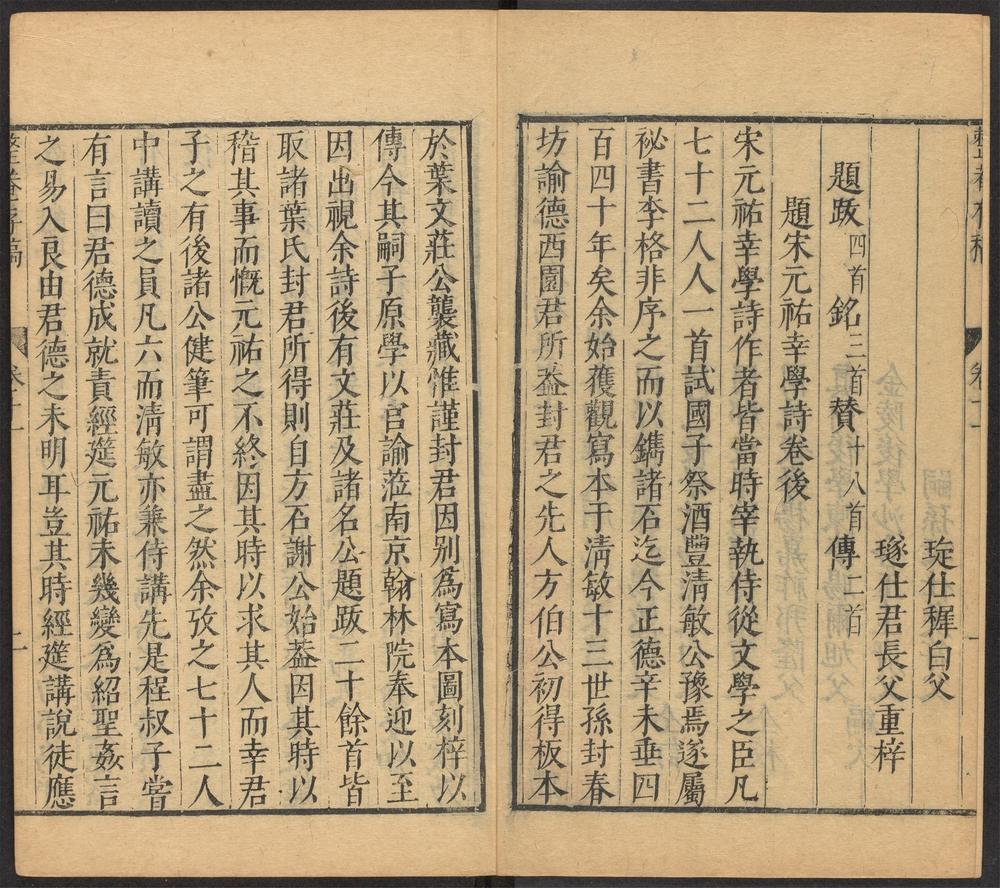 琁仕穉白父
璲仕君長父重梓
題䟦四首銘三首賛十八首傳二首
題宋元祐幸學詩卷後
宋元祐幸學詩作者皆當時宰執侍從文學之臣凡
七十二人人一首試國子祭酒豐清敏公豫焉遂屬
祕書李格非序之而以鐫諸石迄今正德辛未垂四
百四十年矣余始獲觀寫本于清敏十三世孫封春
坊諭德西園君所葢封君之先人方伯公初得板本
於葉文莊公襲藏惟謹封君因别爲寫本圖刻梓以
傳今其嗣子原學以官諭蒞南京翰林院奉迎以至
因出視余詩後有文莊及諸名公題䟦二十餘首皆
取諸葉氏封君所得則自方石謝公始葢因其時以
稽其事而慨元祐之不終因其時以求其人而幸君
子之有後諸公健筆可謂盡之然余攷之七十二人
中講讀之員凡六而清敏亦兼侍講先是程叔子嘗
有言曰君德成就責經筵元祐未幾變爲紹聖姦言
之易入良由君德之未明耳豈其時經筵講說徒應
整菴存稿
卷十一